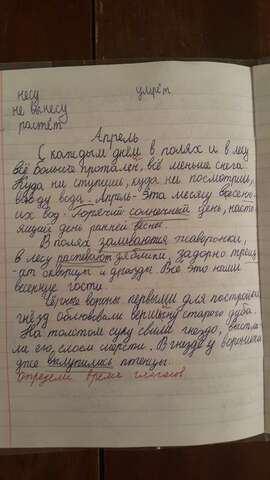 несу умрёт
не вынесу
растёт
Апрель
С каждым днём в полях и в лесу
всё больше протален, всё меньше снега.
Куда ни ступишь, куда ни посмотришь,
всюду вода. Апрель - это месяц весенн-
их вод. Горячий солнечный день, насто-
ящий день ранней весны.
В полях заливаются жаворонки,
в лесу распевают зяблики, задорно трещ-
ат скворцы и дрозды. Всё это наши
весенние гости.
Чёрные вороны первыми для постройки
гнёзд облюбовали вершину старого дуба.
На толстом суку свили гнездо, высти-
ла его слоем шерсти. В гнезде у воронихи
уже вылупились птенцы.
Определи время глаголов.